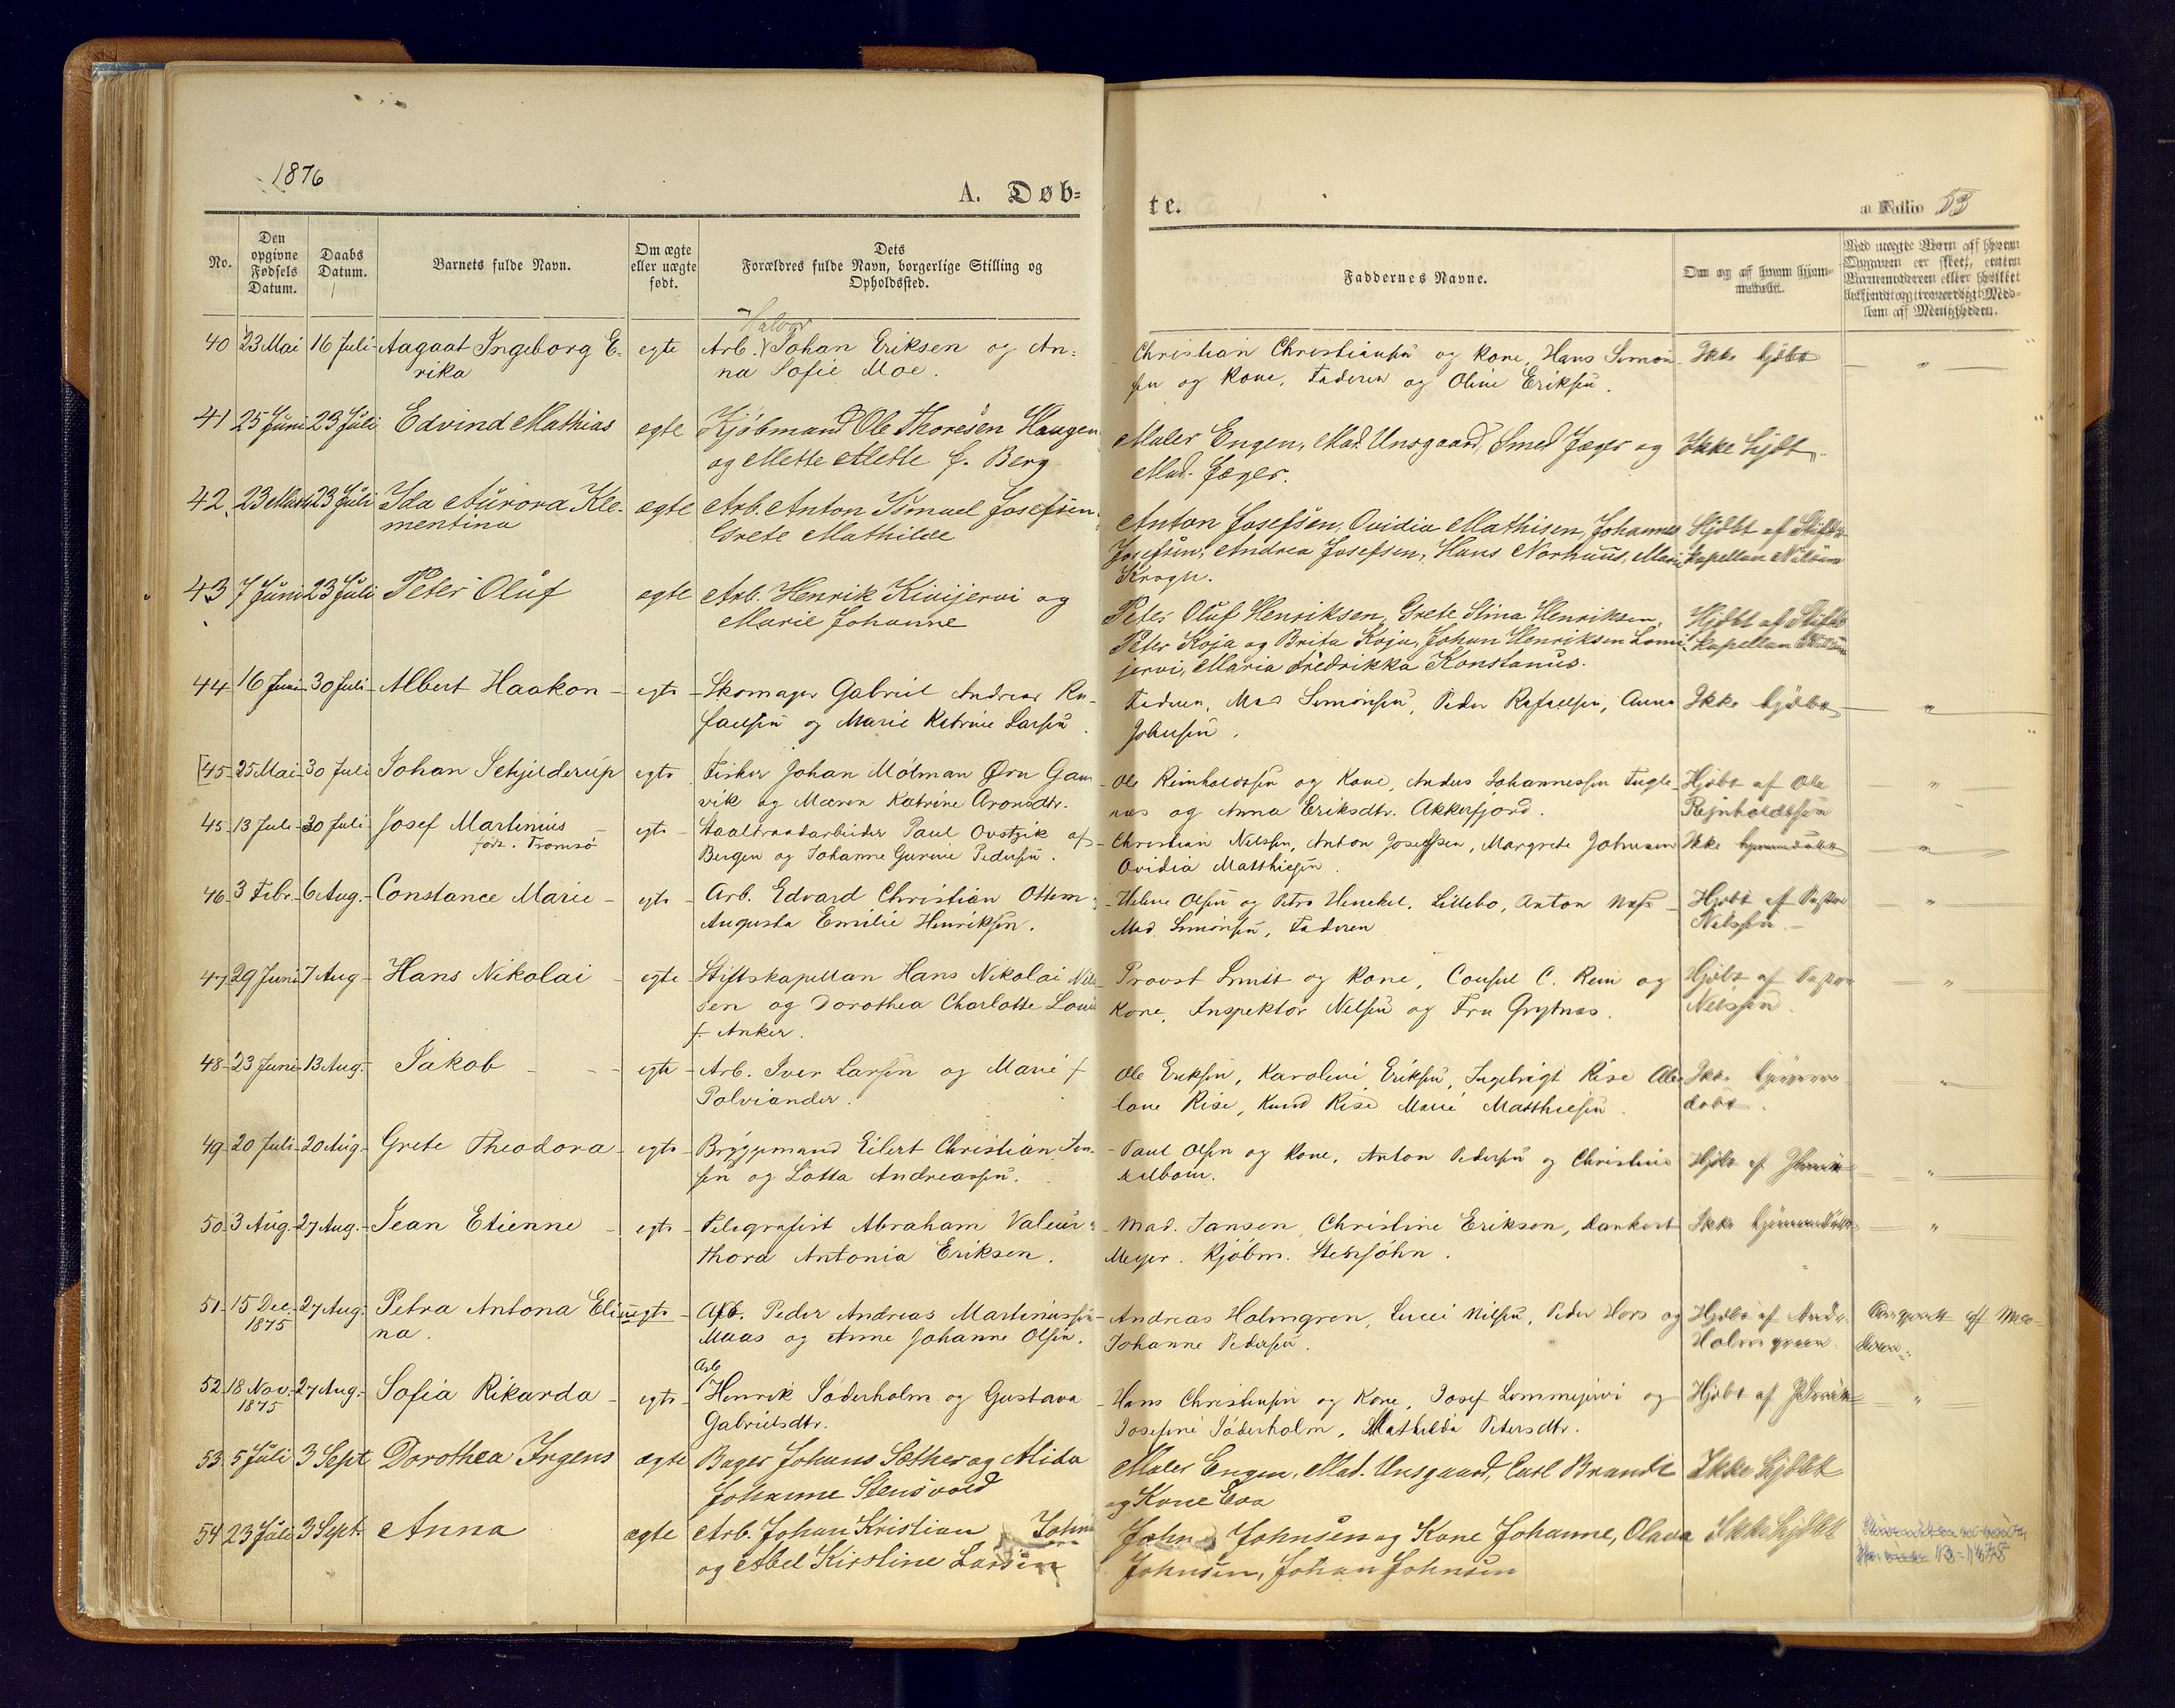 1876
A. Døb=
te.
Folio 53
No.
Den opgivne Fødsels Datum.
Daabs Datum.
Barnets fulde Navn.
Om ægte eller uægte født.
Dets Forældres fulde Navn, borgerlige Stilling og Opholdssted.
Faddernes Navne.
Om og af hvem hjemmedøbt.
Ved uægte Børn af hvem Opgaven er skeet, enten Barnemoderen eller hvilket bekjendt og troværdigt Medlem af Menigheden.
Halvor
40 23 Mai 16 Juli Aagaat Ingeborg E- egte Arb. Johan Eriksen og An- Christian Christiansen og Kone, Hans Simon- Ikke hjdbt "
rika na Sofie Moe. sen og Kone, Faderen og Oline Eriksen.
41 25 Juni 23 Juli Edvind Mathias egte Kjöbmand Ole Thoresen Haugen Maler Engen, Mad. Unsgaard, Smed Jæger og Ikke hjdbt
og Mette Mette f. Berg Mad. Jæger.
42 23 Marts 23 Juli Ida Aurora Kle- ægte Arb. Anton Ismael Josefsen Anton Josefsen, Ovidia Mathisen, Johannes Hjdbt af Stifts-
mentina Grete Mathilde Josefsen, Andrea Josefsen, Hans Norhuus, Marie kapellan Nilsen
Krogh.
43 7 Juni 23 Juli Peter Oluf ægte Arb. Henrik Kivijervi og Peter Oluf Henriksen, Grete Stina Henriksen, Hjdbt af Stifts-
Marie Johanne Peter Koja og Brita Koja, Johan Henriksen Lomi- kapellan Nilsen
jervi, Maria Fredrikka Konstanus.
44 16 Juni 30 Juli Albert Haakon egte Skomager Gabriel Andreas Ra- Faderen, Mad Simonsen, Peder Rafaelsen, Anna Ikke hjdbt "
faelsen og Marie Katrine Larsen. Johnsen.
45 25 Mai 30 Juli Johan Schjelderup egte Fisker Johan Molman Ørn Gam Ole Reinholdtsen og Kone, Anders Johannessen Fugle- Hjdbt af Ole "
vik og Maren Katrine Aronsdtr. næs og Anna Eriksdtr. Akkerfjord. Rejnholdtsen
45 13 Juli 30 Juli Josef Martinius egte Staaltraadarbeider Paul Ovstzik af Christian Nilssen, Anton Josefsen, Margrete Johnsen Ikke hjemmedøbt "
födt i Tromsö Bergen og Johanne Gurine Pedersen. Ovidia Matthiesen.
46 3 Febr. 6 Aug. Constance Marie egte Arb. Edvard Christian Ottem Helene Olsen og Petra Henckel, Lillebo, Anton Næss Hjdbt af Pastor "
Augusta Emilie Henriksen. Mad. Simonsen, Faderen Nilssen
47 29 Juni 7 Aug. Hans Nikolai egte Stiftskapellan Hans Nikolai Nils- Provst Smitt og Kone, Consul C. Rein og Hjdbt af Pastor "
sen og Dorothea Charlotte Louise Kone, Inspektor Nilsen og Fru Grytnæs. Nilssen
f. Anker.
48 23 Juni 13 Aug. Jakob egte Arb. Iver Larsen og Marie f Ole Eriksen, Karoline Eriksen, Ingebrigt Rise Ikke hjemme- "
Palviander. Rise, Knud Rise Marie Matthiesen. døbt.
49 20 Juli 20 Aug. Grete Theodora egte Bryggemand Eilert Christian Jen- Paul Olsen og Kone, Anton Pedersen og Christine Hjdbt af "
sen og Lotta Andreassen.
50 3 Aug. 27 Aug. Jean Etienne egte Telegrafist Abraham Valeur Mad. Jansen, Christine Eriksen, Dankert Ikke hjemmedøbt "
Thora Antonia Eriksen. Meyer. Kjöbm. Stensöhn.
51 15 Dec. 27 Aug. Petra Antona Eli- uegte Arb. Peder Andreas Martinussen Andreas Holmgren, Lucie Nilsen, Peder Hors og Hjdbt af Andr. Opgivet af Mo-
1875 na. Maas og Anne Johanne Olsen. Johanne Pedersen. Holmgreen. deren
Arb
52 18 Nov. 27 Aug. Sofia Rikarda egte Henrik Söderholm og Gustava Hans Christensen og Kone, Josef Lommijervi og Hjdbt af "
1875 Gabrielsdtr. Josefine Söderholm, Mathilda Petersdtr.
53 5 Juli 3 Sept Dorothea Irgens ægte Bager Johans Sæther og Alida Maler Engen, Mad. Unsgaard, Carl Brandt Ikke hjdbt
Johanne Stensvold og Kone Eva
54 23 Juli 3 Sept. Anna ægte Arb. Johan Kristian Johnsen John Johnsen og Kone Johanne, Olava Ikke hjdbt
og Abel Kirstine Larsen Johnsen, Johan Johnsen